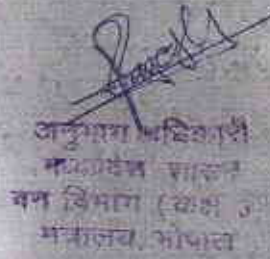 अनुभाग अधिकारी
मध्यप्रदेश शासन
वन विभाग (कक्ष
मंत्रालय, भोपाल